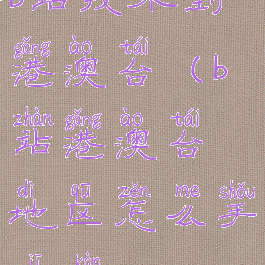 b站找不到
gǎng ào tái
港澳台（b
zhàn gǎng ào tái
站港澳台
dì qū zěn me shǒu
地区怎么手
jī kàn